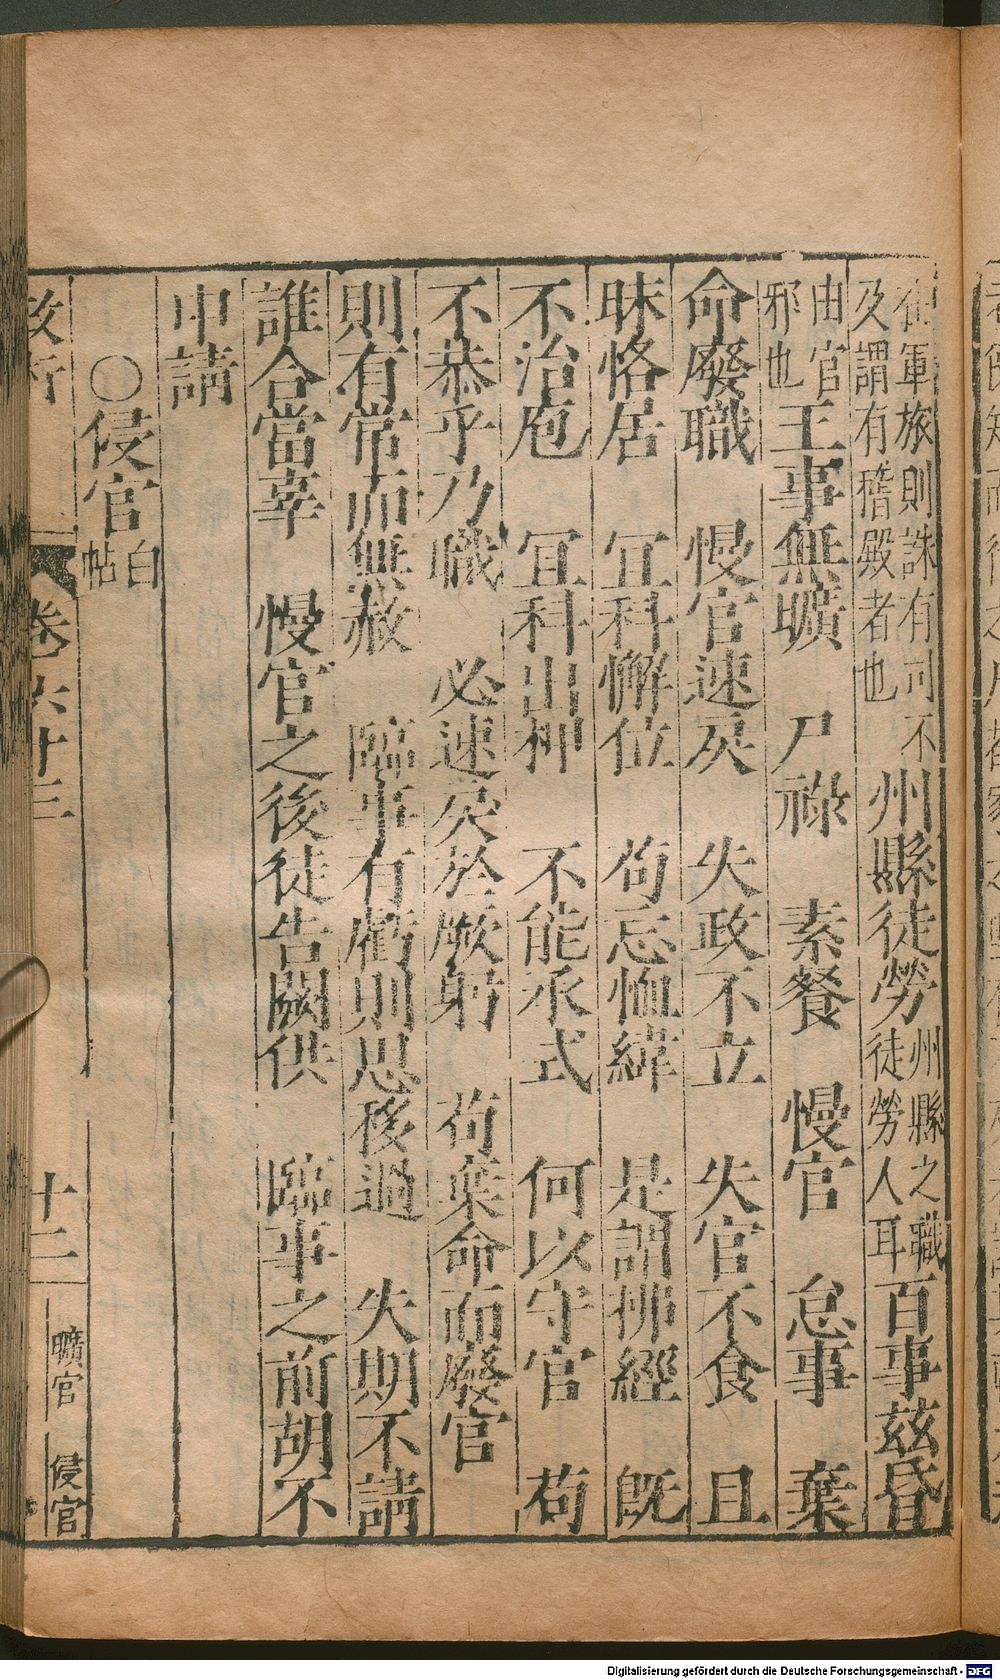 在軍旅則誅有司不
及謂有稽殿者也
州縣徒勞
州縣之職
徒勞人耳
百事茲昏
由官
邪也
王事無曠　尸祿　素餐　慢官　怠事　棄
命廢職　慢官速戾　失政不立　失官不食　且
昧恪居　冝科懈位　苟忘恤緯　是謂拂經　旣
不治庖　冝科出柙　不能承式　何以守官　苟
不恭乎乃職　必速戾於厥躬　苟棄命而廢官
則有常而無赦　臨事有虧則思後過　失期不請
誰合當辜　慢官之後徒告闕供　臨事之前胡不
申請
○侵官
白
帖
卷六十三
十二
曠官　侵官
Digitalisierung gefördert durch die Deutsche Forschungsgemeinschaft - DFG